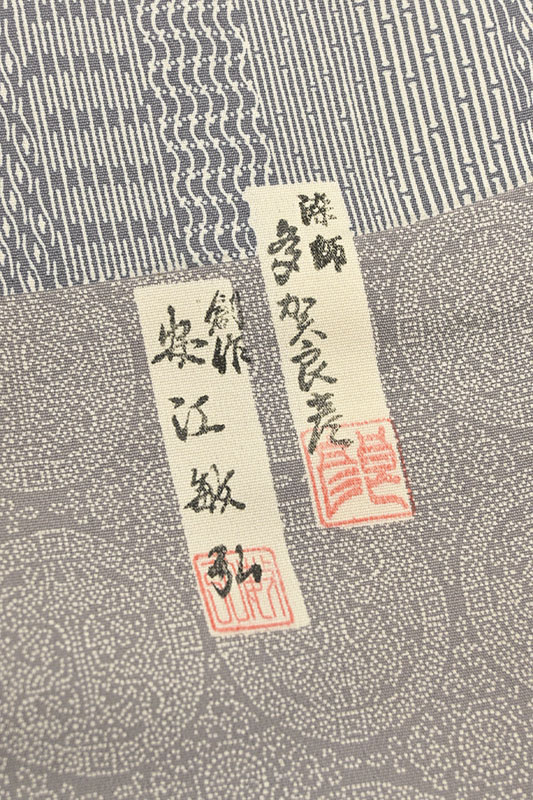 染師
多賀良彦
創作
江敏弘